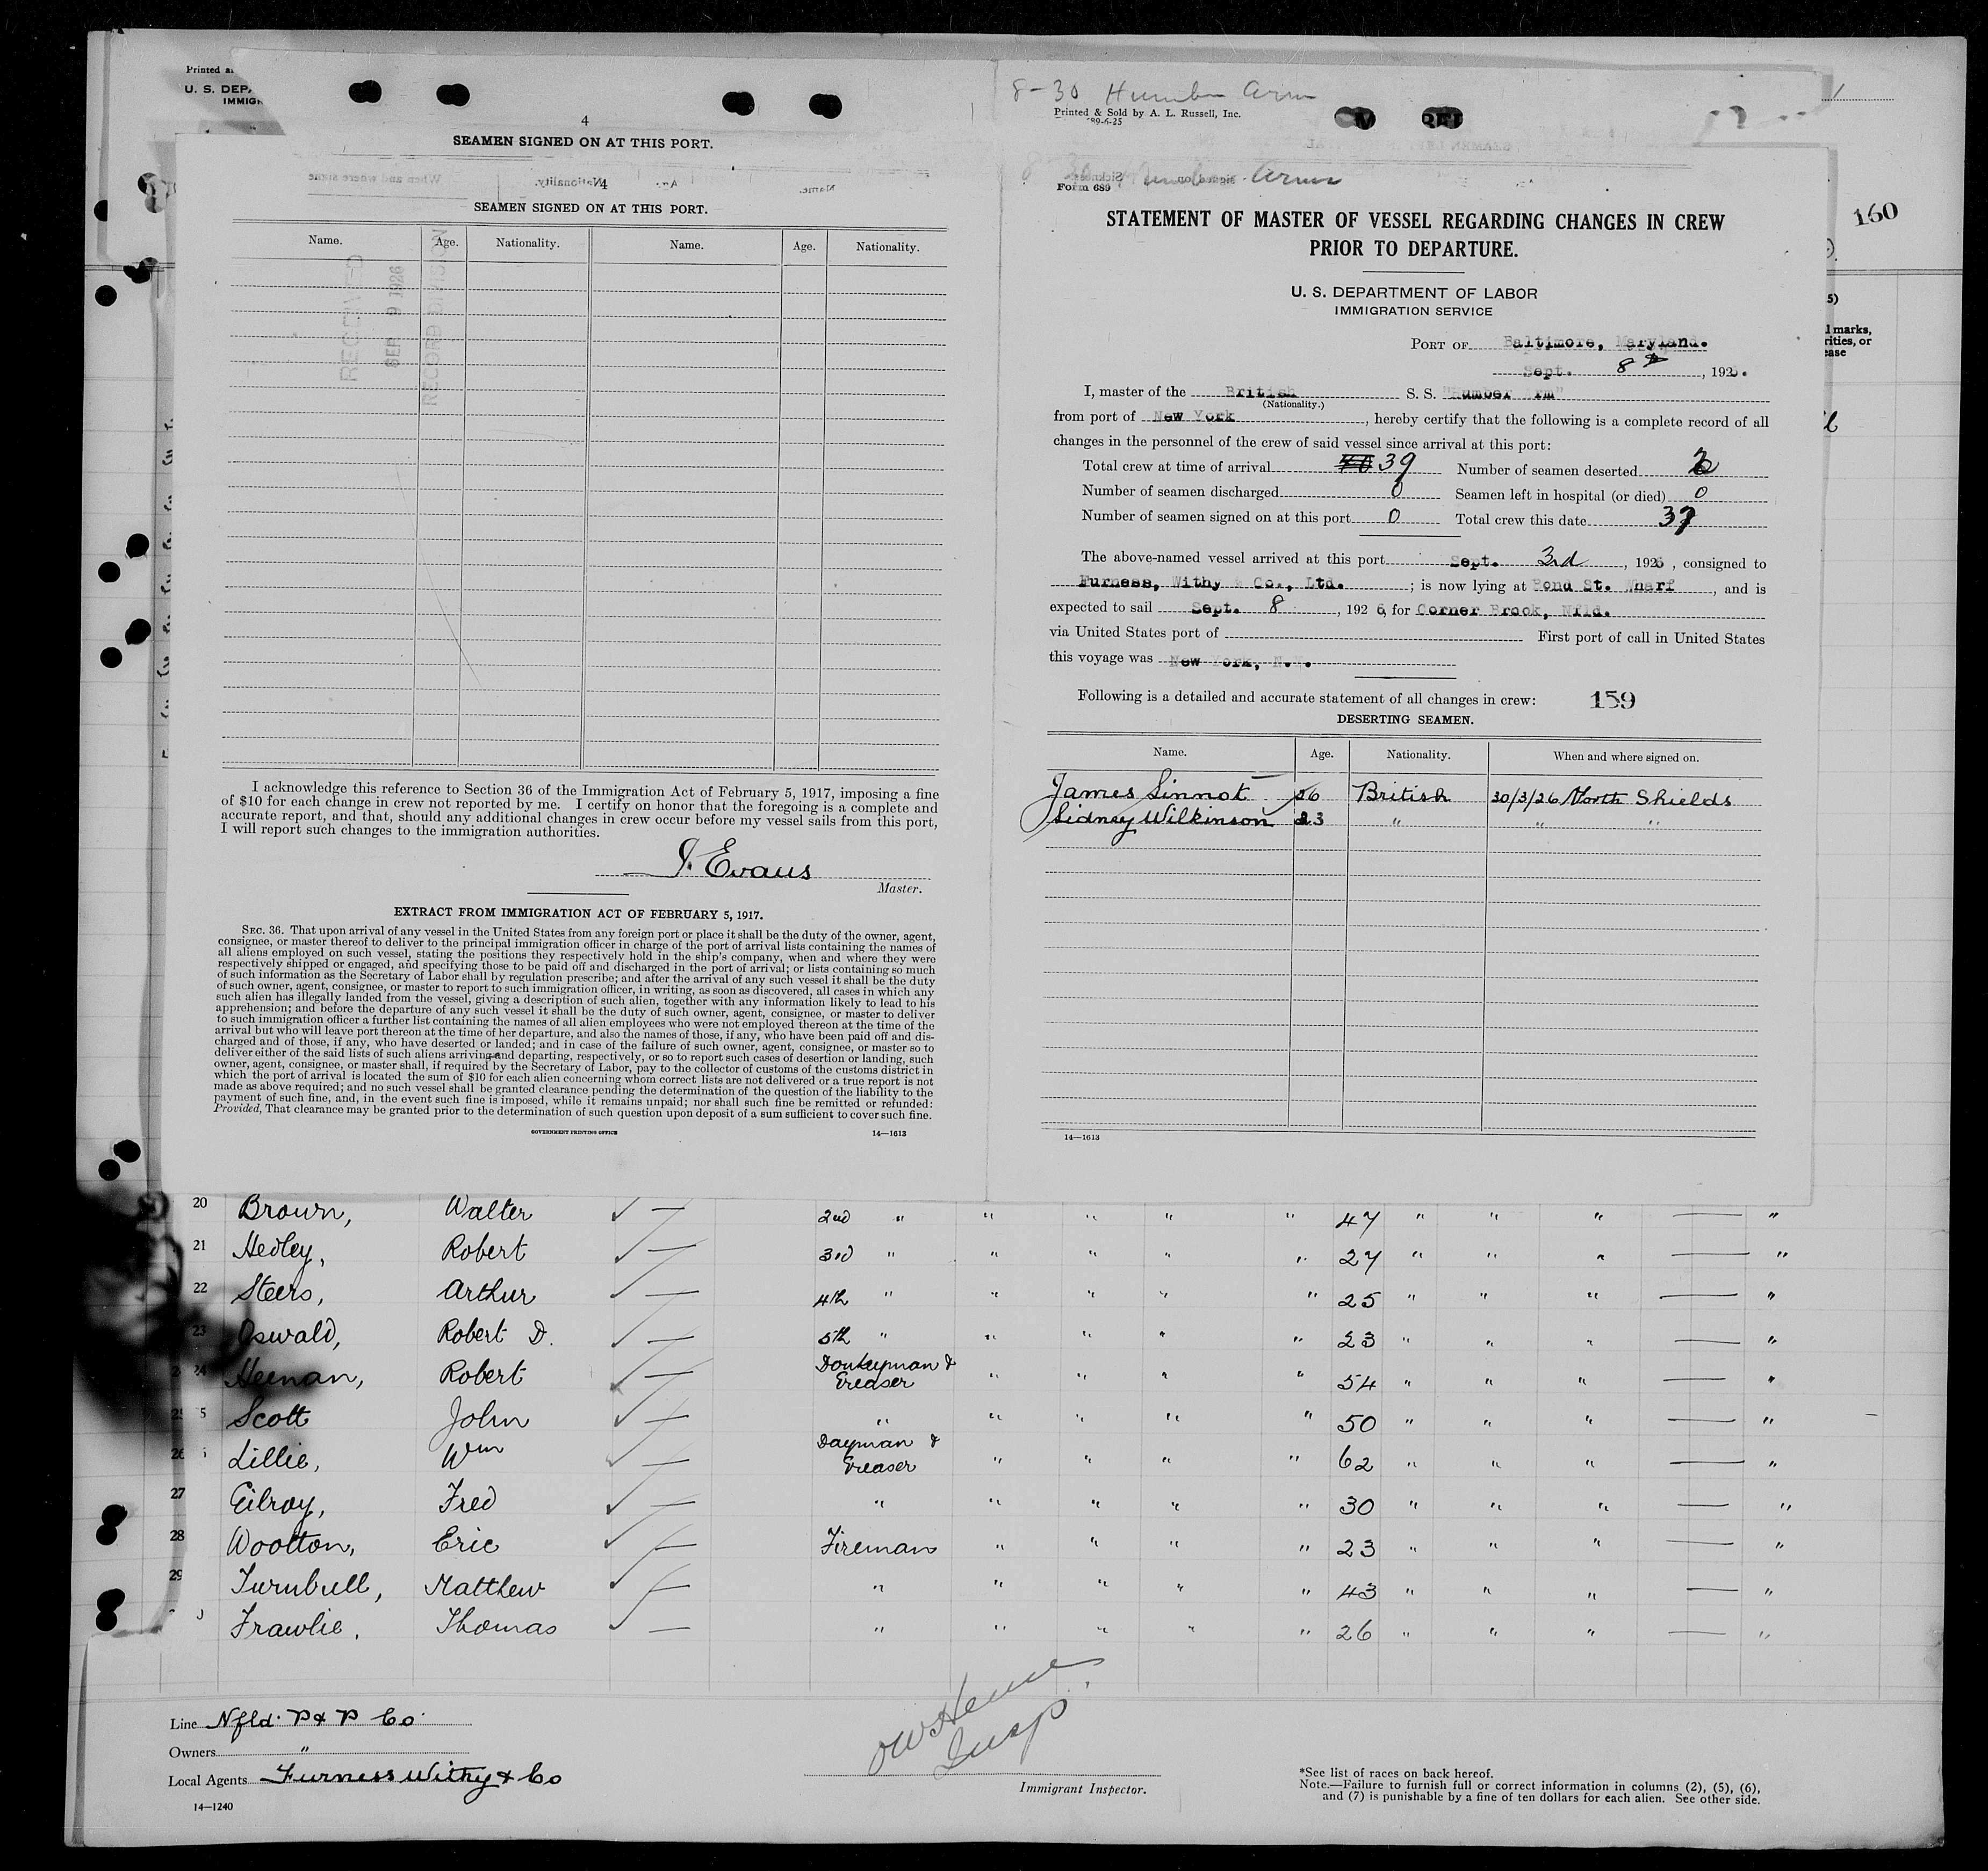 Printed a
U. S. DEP
IMMIG
4
SEAMEN SIGNED ON AT THIS PORT.
4
SEAMEN SIGNED ON AT THIS PORT.
Name. Age. Nationality. Name. Age. Nationality.
RECEIVED
SEP 9 1926
RECORD DIVISION
I acknowledge this reference to Section 36 of the Immigration Act of February 5, 1917, imposing a fine
of $10 for each change in crew not reported by me. I certify on honor that the foregoing is a complete and
accurate report, and that, should any additional changes in crew occur before my vessel sails from this port,
I will report such changes to the immigration authorities.
J. Evans
Master.
EXTRACT FROM IMMIGRATION ACT OF FEBRUARY 5, 1917.
SEC. 36. That upon arrival of any vessel in the United States from any foreign port or place it shall be the duty of the owner, agent,
consignee, or master thereof to deliver to the principal immigration officer in charge of the port of arrival lists containing the names of
all aliens employed on such vessel, stating the positions they respectively hold in the ship's company, when and where they were
respectively shipped or engaged, and specifying those to be paid off and discharged in the port of arrival; or lists containing so much
of such information as the Secretary of Labor shall by regulation prescribe; and after the arrival of any such vessel it shall be the duty
of such owner, agent, consignee, or master to report to such immigration officer, in writing, as soon as discovered, all cases in which any
such alien has illegally landed from the vessel, giving a description of such alien, together with any information likely to lead to his
apprehension; and before the departure of any such vessel it shall be the duty of such owner, agent, consignee, or master to deliver
to such immigration officer a further list containing the names of all alien employees who were not employed thereon at the time of the
arrival but who will leave port thereon at the time of her departure, and also the names of those, if any, who have been paid off and dis-
charged and of those, if any, who have deserted or landed; and in case of the failure of such owner, agent, consignee, or master so to
deliver either of the said lists of such aliens arriving and departing, respectively, or so to report such cases of desertion or landing, such
owner, agent, consignee, or master shall, if required by the Secretary of Labor, pay to the collector of customs of the customs district in
which the port of arrival is located the sum of $10 for each alien concerning whom correct lists are not delivered or a true report is not
made as above required; and no such vessel shall be granted clearance pending the determination of the question of the liability to the
payment of such fine, and, in the event such fine is imposed, while it remains unpaid; nor shall such fine be remitted or refunded:
Provided, That clearance may be granted prior to the determination of such question upon deposit of a sum sufficient to cover such fine.
GOVERNMENT PRINTING OFFICE 14—1613
8-30 Humber Arm
Printed & Sold by A. L. Russell, Inc.
Form 689
STATEMENT OF MASTER OF VESSEL REGARDING CHANGES IN CREW
PRIOR TO DEPARTURE.
U. S. DEPARTMENT OF LABOR
IMMIGRATION SERVICE
PORT OF Baltimore, Maryland.
Sept. 8th, 192
I, master of the British S. S. "Humber Arm"
(Nationality.)
from port of New York, hereby certify that the following is a complete record of all
changes in the personnel of the crew of said vessel since arrival at this port:
Total crew at time of arrival 39 Number of seamen deserted 2
Number of seamen discharged 0 Seamen left in hospital (or died) 0
Number of seamen signed on at this port 0 Total crew this date 37
The above-named vessel arrived at this port Sept. 3rd, 1926, consigned to
Furness, Withy & Co., Ltd.; is now lying at Bond St. Wharf, and is
expected to sail Sept. 8, 1926, for Corner Brook, Nfld.
via United States port of First port of call in United States
this voyage was New York, N.Y.
Following is a detailed and accurate statement of all changes in crew: 159
DESERTING SEAMEN.
Name. Age. Nationality. When and where signed on.
James Sinnot 26 British 30/3/26 North Shields
Sidney Wilkinson 23 " " "
14—1613
160
5)
l marks,
rities, or
ease
20 Brown, Walter ✓ — 2nd " " " " " 47 " " " — "
21 Hedley, Robert ✓ — 3rd " " " " " 27 " " " — "
22 Steers, Arthur ✓ — 4th " " " " " 25 " " " — "
23 Oswald, Robert D. ✓ — 5th " " " " " 23 " " " — "
24 Heenan, Robert ✓ — Donkeyman & Greaser " " " " 54 " " " — "
25 Scott John ✓ — " " " " " 50 " " " — "
26 Lillie, Wm ✓ — Dayman & Greaser " " " " 62 " " " — "
27 Gilroy, Fred ✓ — " " " " " 30 " " " — "
28 Wootton, Eric ✓ — Fireman " " " " 23 " " " — "
29 Turnbull, Matthew ✓ — " " " " " 43 " " " — "
Frawlie, Thomas ✓ — " " " " " 26 " " " — "
Line Nfld. P & P Co.
Owners "
Local Agents Furness Withy & Co
14—1240
Insp.
Immigrant Inspector.
*See list of races on back hereof.
Note.—Failure to furnish full or correct information in columns (2), (5), (6),
and (7) is punishable by a fine of ten dollars for each alien. See other side.